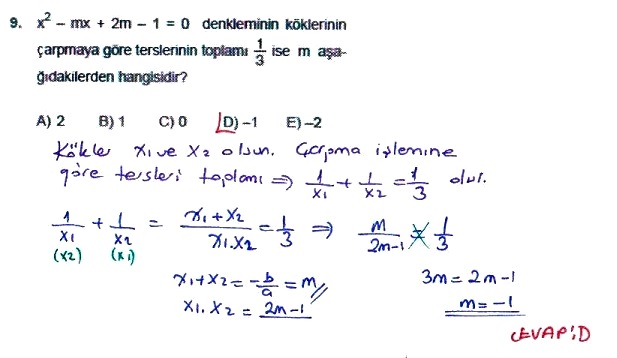 9. x² – mx + 2m – 1 = 0 denkleminin köklerinin
çarpmaya göre terslerinin toplamı 1/3 ise m aşa-
ğıdakilerden hangisidir?
A) 2 B) 1 C) 0 D) –1 E) –2
Kökler x₁ ve x₂ olsun. Çarpma işlemine
göre tersleri toplamı ⇒ 1/x₁ + 1/x₂ = 1/3 olur.
1/x₁ + 1/x₂ = x₁+x₂/x₁.x₂ = 1/3 ⇒ m/2m-1 = 1/3
(x₂) (x₁)
x₁+x₂ = -b/a = m 3m = 2m-1
x₁.x₂ = 2m-1 m = -1
CEVAP: D